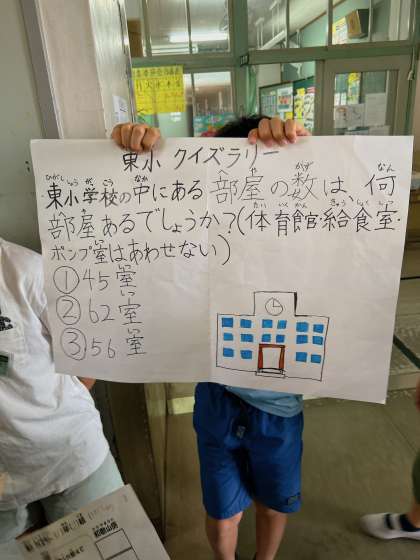 東小 クイズラリー
東小学校の中にある部屋の数は、何
部屋あるでしょうか?(体育館・給食室・
ポンプ室はあわせない)
①45室
②62室
③56室